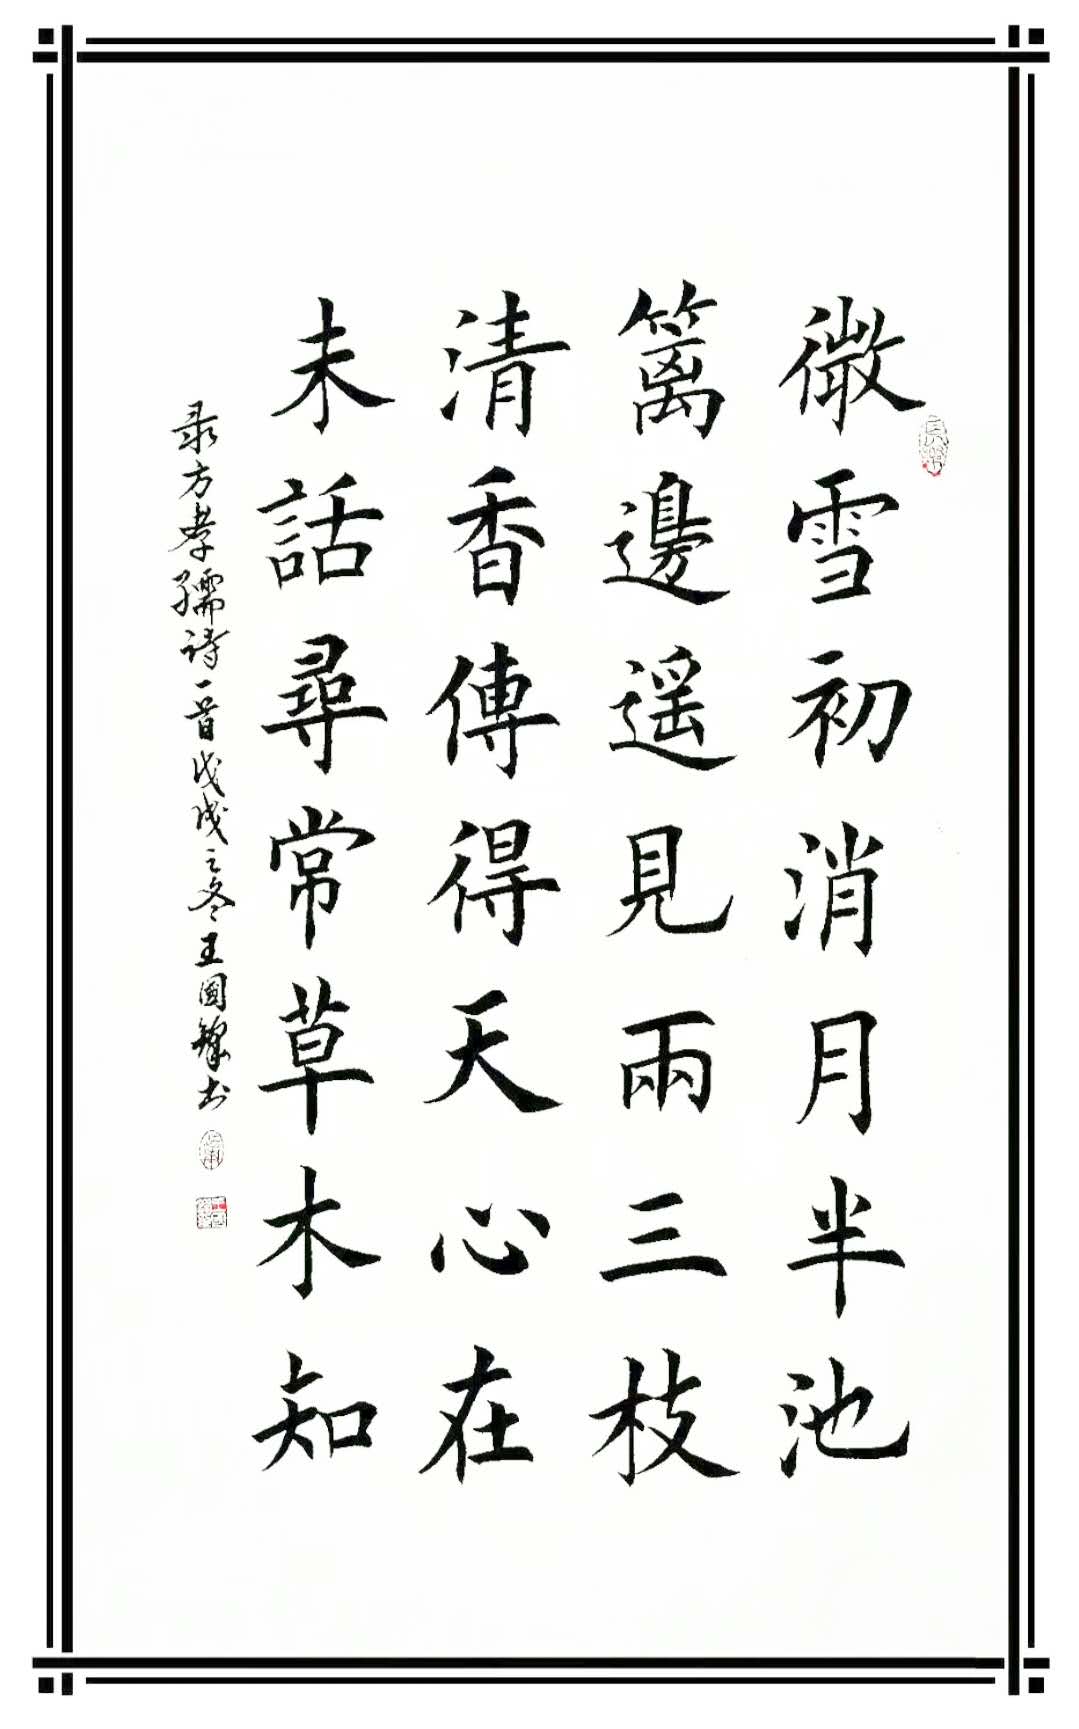 微雪初消月半池
籬邊遥見兩三枝
清香傳得天心在
未話尋常草木知
录方孝孺诗一首戊戌之冬王國鋒书